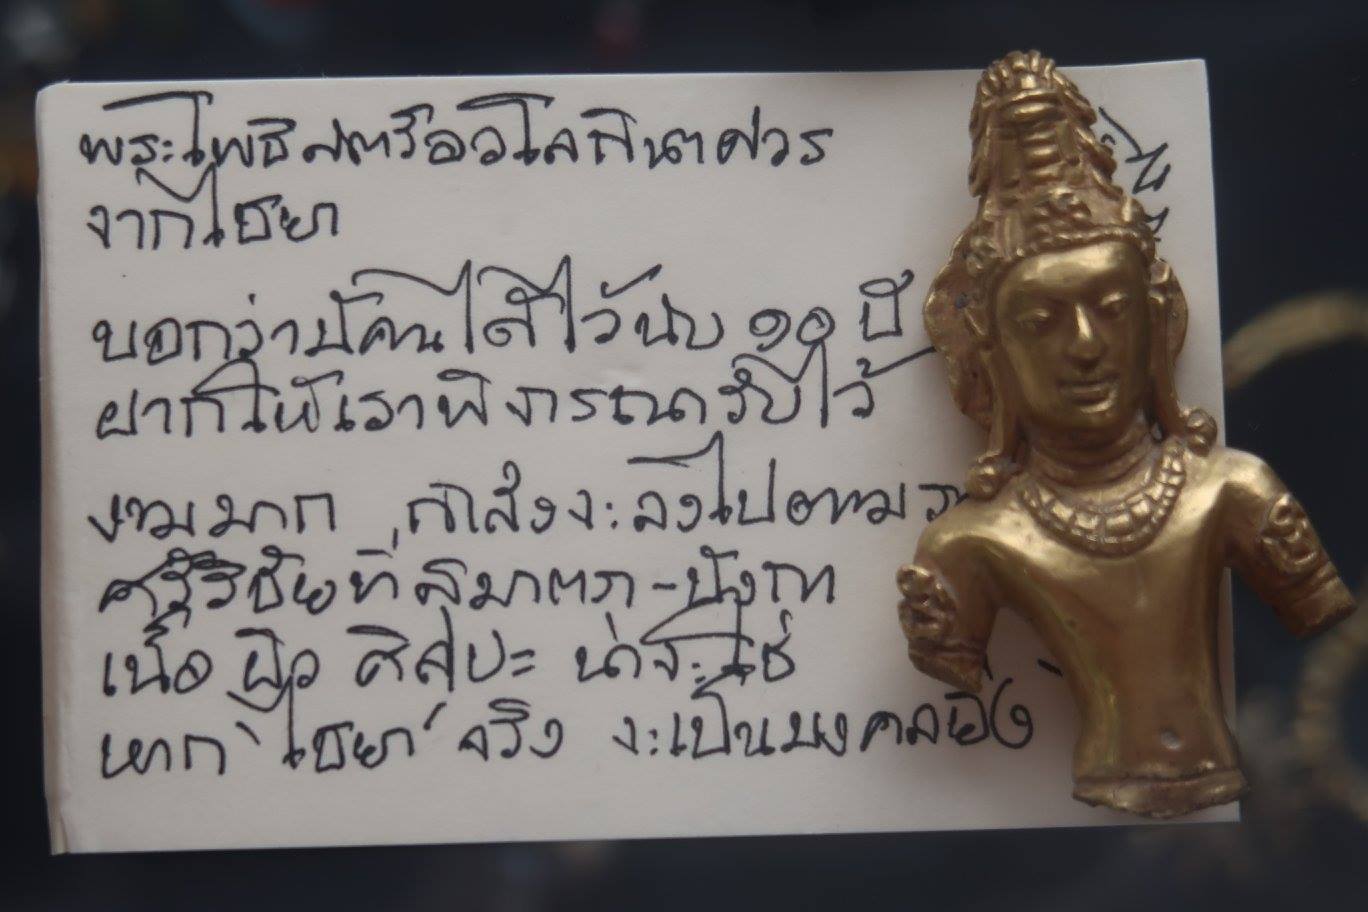 พระโพธิสตว์อวโลกิเตศวร
จากไชยา
บอกว่ามีคนได้ไว้นับ ๑๐ ปี
ฝากให้เราพิจารณารับไว้
งามมาก กำลังจะลงไปตาม
ศรีวิชัยที่สุมาตรา-
เนื้อ ผิว ศิลปะ น่าจะใช่
หาก 'ไชยา' จริง จะเป็นมงคลยิ่ง